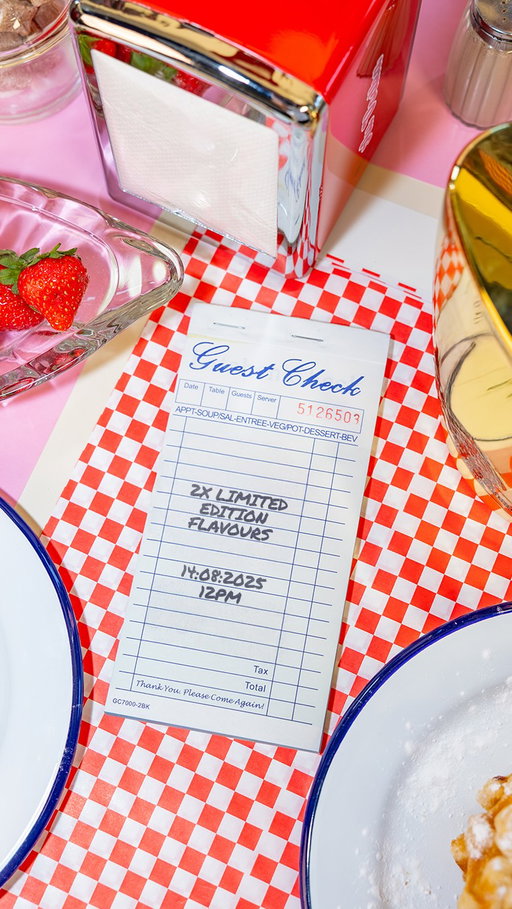 Guest Check
Date Table Guests Server
5126503
APPT-SOUP/SAL-ENTREE-VEG/POT-DESSERT-BEV
2X LIMITED
EDITION
FLAVOURS
14:08:2025
12PM
Tax
Total
Thank You, Please Come Again!
GC7000-2BK